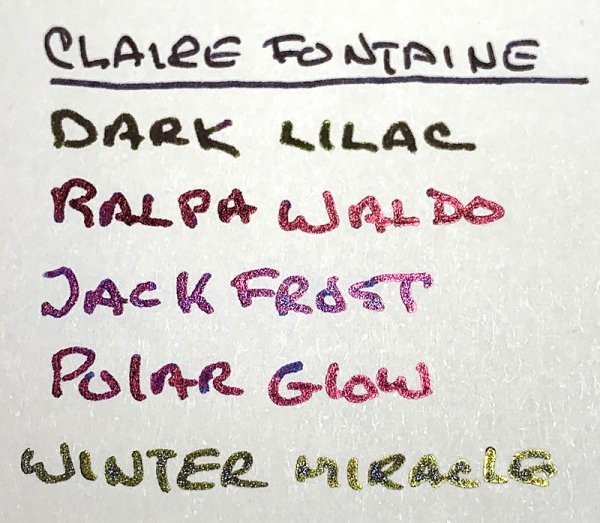 CLAIRE FONTAINE
DARK LILAC
RALPA WALDO
JACK FROST
POLAR GLOW
WINTER MIRACLE